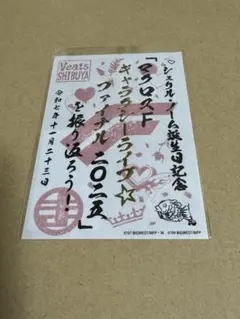 Veats
SHIBUYA
シェリル・ノーム誕生日記念
「マクロスF
ギャラクシーライブ☆
ファイナル二〇二五」
を振り返ろう!
令和七年十一月二十三日